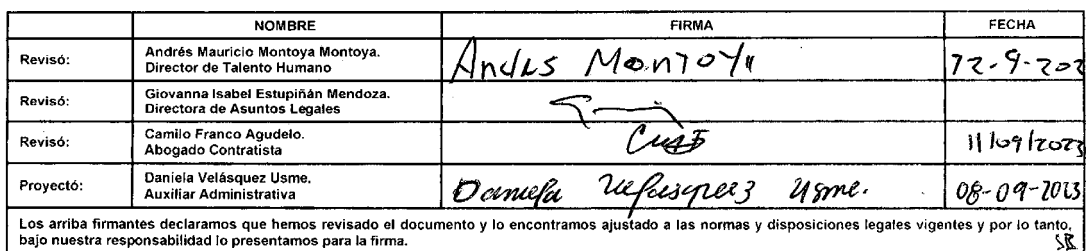 NOMBRE FIRMA FECHA
Revisó: Andrés Mauricio Montoya Montoya.
Director de Talento Humano
Andrés Montoya 12-9-202
Revisó: Giovanna Isabel Estupiñán Mendoza.
Directora de Asuntos Legales
Revisó: Camilo Franco Agudelo.
Abogado Contratista
11/09/2023
Proyectó: Daniela Velásquez Usme.
Auxiliar Administrativa
Daniela Velásquez Usme. 08-09-2023
Los arriba firmantes declaramos que hemos revisado el documento y lo encontramos ajustado a las normas y disposiciones legales vigentes y por lo tanto,
bajo nuestra responsabilidad lo presentamos para la firma.